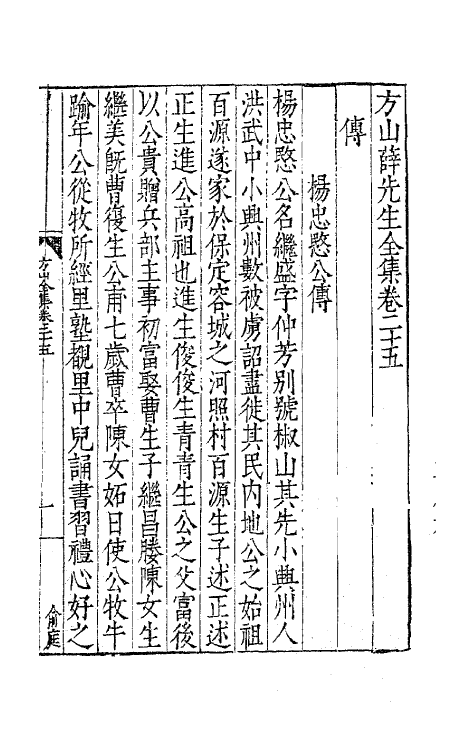 方山薛先生全集卷二十五
傳
楊忠愍公傳
楊忠愍公名繼盛字仲芳别號椒山其先小興州人
洪武中小興州數被虜詔盡徙其民内地公之始祖
百源遂家於保定容城之河照村百源生子述正述
正生進公高祖也進生俊俊生青青生公之父富後
以公貴贈兵部主事初富娶曹生子繼昌媵陳女生
繼美既曹復生公甫七歲曹卒陳女妬日使公牧牛
踰年公從牧所經里塾覩里中兒誦書習禮心好之
方山全集卷二十五
一
俞庭